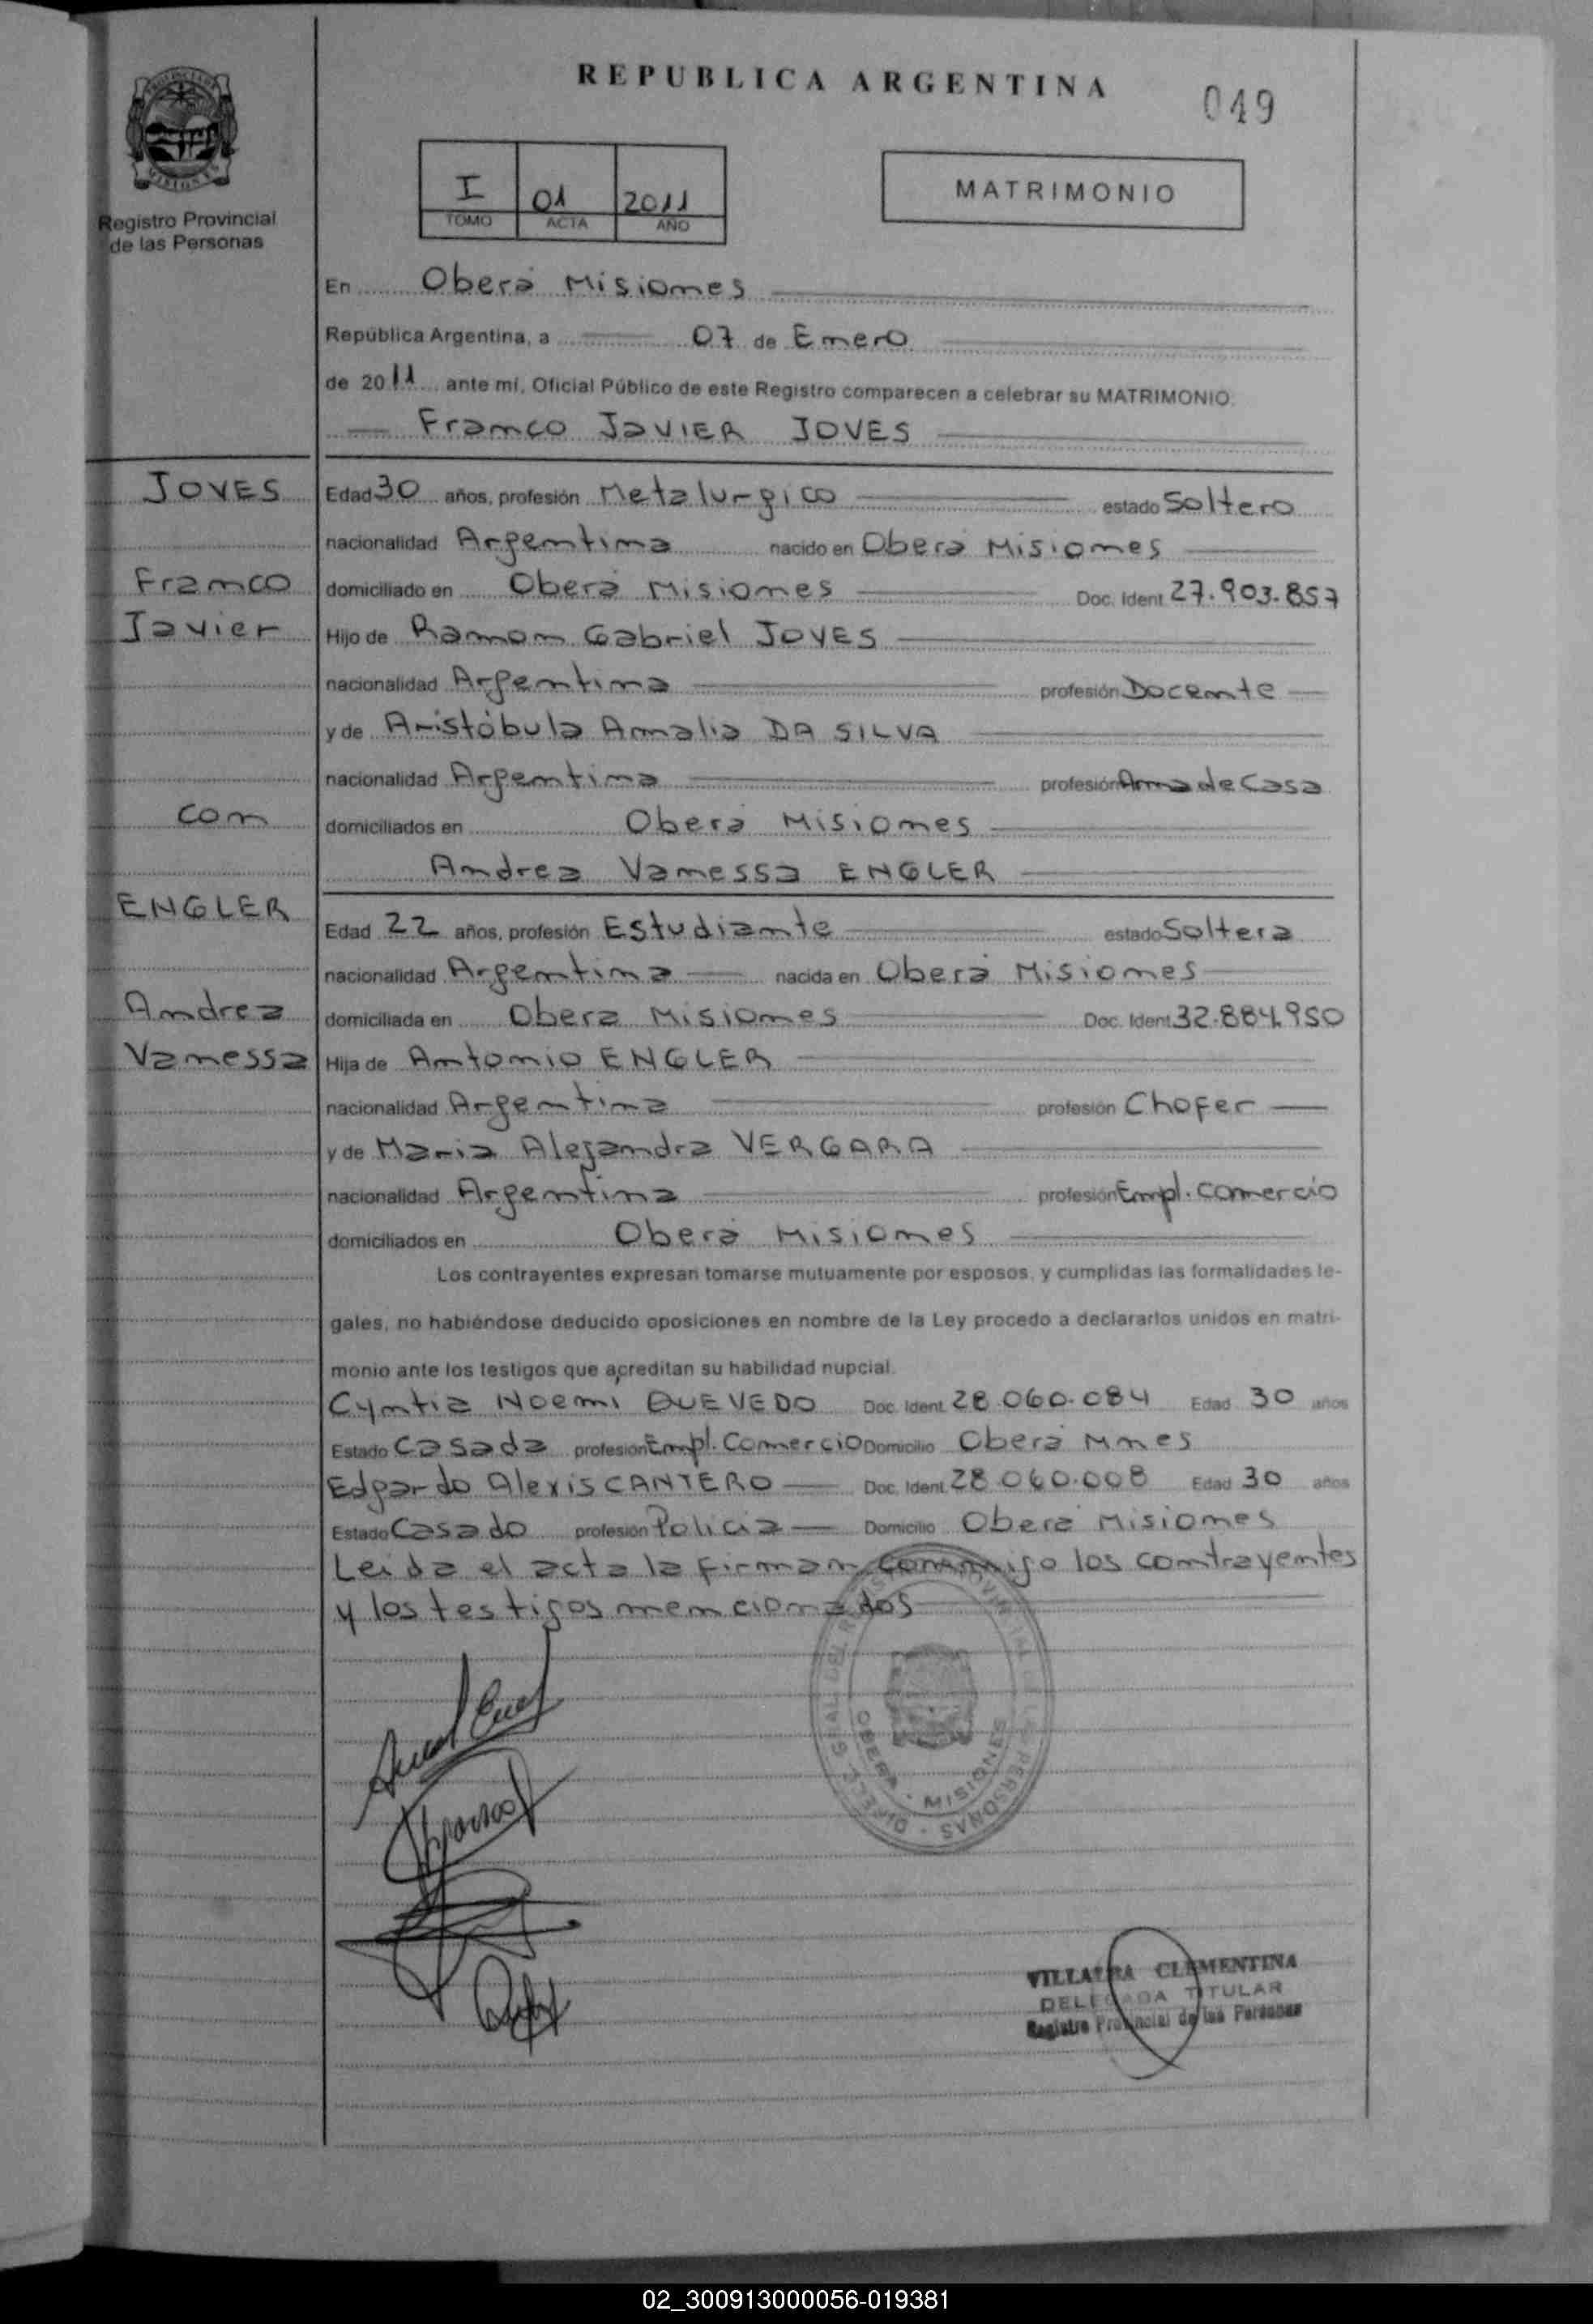 REPUBLICA ARGENTINA
049
Registro Provincial
de las Personas
I 01 2011
TOMO ACTA AÑO
MATRIMONIO
En Oberá Misiones
República Argentina, a 07 de Enero
de 2011 ante mí, Oficial Público de este Registro comparecen a celebrar su MATRIMONIO:
Franco JAVIER JOVES
JOVES
Franco
Javier
con
ENGLER
Andrea
Vanessa
Edad 30 años, profesión Metalurgico estado Soltero
nacionalidad Argentina nacido en Oberá Misiones
domiciliado en Oberá Misiones Doc. Ident 27.903.857
Hijo de Ramon Gabriel JOVES
nacionalidad Argentina profesión Docente
y de Aristóbula Amalia DA SILVA
nacionalidad Argentina profesión Ama de Casa
domiciliados en Oberá Misiones
Andrea Vanessa ENGLER
Edad 22 años, profesión Estudiante estado Soltera
nacionalidad Argentina nacida en Oberá Misiones
domiciliada en Obera Misiones Doc. Ident 32.884.950
Hija de Antonio ENGLER
nacionalidad Argentina profesión Chofer
y de Maria Alejandra VERGARA
nacionalidad Argentina profesión Empl. Comercio
domiciliados en Oberá Misiones
Los contrayentes expresan tomarse mutuamente por esposos, y cumplidas las formalidades le-
gales, no habiéndose deducido oposiciones en nombre de la Ley procedo a declararlos unidos en matri-
monio ante los testigos que acreditan su habilidad nupcial.
Cyntia Noemi QUEVEDO Doc. Ident. 28.060.084 Edad 30 años
Estado Casada profesión Empl. Comercio Domicilio Oberá Mnes
Edgardo Alexis CANTERO Doc. Ident. 28.060.008 Edad 30 años
Estado Casado profesión Policia Domicilio Oberá Misiones
Leida el acta la firman conmigo los contrayentes
y los testigos mencionados
OBERA - MISIONES
VILLALBA CLEMENTINA
DELEGADA TITULAR
Registro Provincial de las Personas
02_300913000056-019381